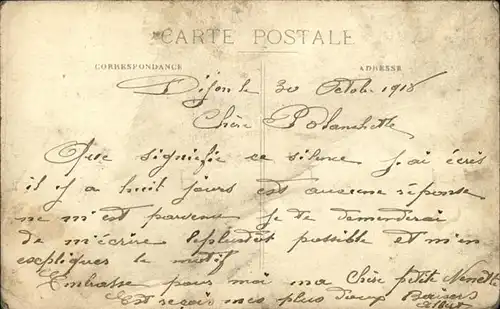 CARTE POSTALE
CORRESPONDANCE
ADRESSE
Dijon le 30 Octobre 1918
Chère
Que signifie ce silence j'ai écris
il y a huit jours est aucune réponse
ne m'est parvenu je te demanderai
de m'écrire le plustôt possible et m'en
expliquer le motif
Embrasse pour moi ma Chère petite Nenette
Est reçois mes plus doux Baisers